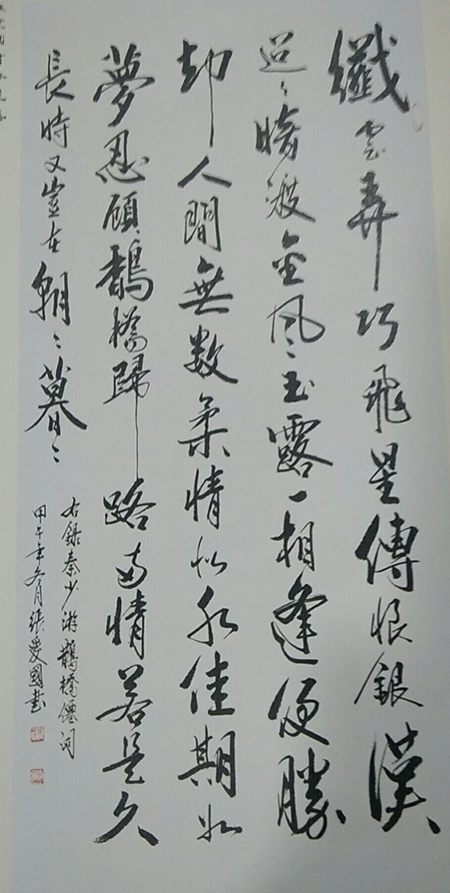 纖雲弄巧飛星傳恨銀漢
迢〻暗渡金風玉露一相逢便勝
却人間無數柔情似水佳期如
夢忍顧鵲橋歸路兩情若是久
長時又豈在朝〻暮〻
右錄秦少游鵲橋僊詞
甲午年冬月張愛國書